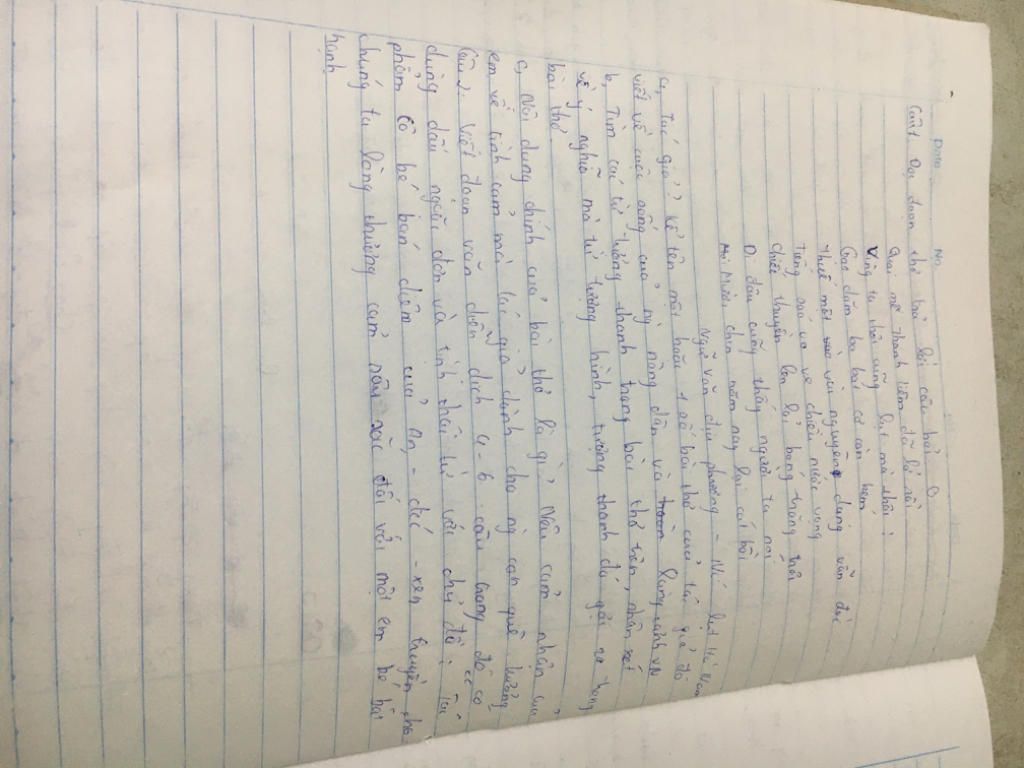 Date No.
Câu 1. Đọc đoạn thơ trả lời câu hỏi
Quai mễ Thanh Liêm đã lở rồi
Vùng ta thôi cũng lụt mà thôi!
Gạo dăm ba bát cơ còn kém
Thuế một vài nguyên dạng vẫn đòi
Tiếng sáo vo ve chiều nước vọng
Chiếc thuyền len lỏi bóng trăng trôi
Đi đâu cũng thấy người ta nói
Mười chín năm nay lại cát bồi
Ngữ văn địa phương - Nước lụt Hà Nam
a, Tác giả? Kể tên một 1 số bài thơ của tác giả đó
viết về cuộc sống của ng nông dân và làng cảnh VN
b, Tìm các từ tượng thanh trong bài thơ trên, nhận xét
về ý nghĩa mà từ tượng hình, tượng thanh đó gợi ra trong
bài thơ
c, Nội dung chính của bài thơ là gì? Nêu cảm nhận của
em về tình cảm mà tác giả dành cho ng con quê hương
Câu 2. Viết đoạn văn diễn dịch 4-6 câu trong đó có
dùng dấu ngoặc đơn và tình thái từ với chủ đề: Tác
phẩm Cô bé bán diêm của An-đéc-xen truyền cho
chúng ta lòng thương cảm sâu sắc đối với một em bé bất
hạnh